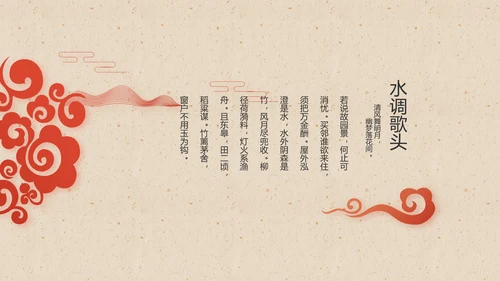 水调歌头
清风舞明月，
幽梦落花间。
若说故园景，何止可
消忧。买邻谁欲来住，
须把万金酬。屋外泓
澄是水，水外阴森是
竹，风月尽兜收。柳
径荷漪料，灯火系渔
舟。且东皋，田二顷，
稻粱谋。竹篱茅舍，
窗户不用玉为钩。